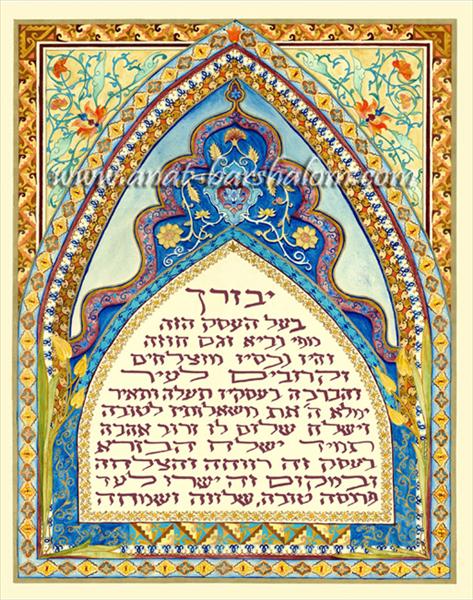 www.anat-barshalom.com
יבורך
בעל העסק הזה
מפי נביא וגם חוזה
והיו נכסיו מוצלחים
וקרובים לעיר
והברכה בעסקיו תעלה ותאיר
ימלא ה' את משאלותיו לטובה
וישלח שלום לו דרור אהבה
תמיד ישלח הבורא
בעסק זה רווחה והצלחה
ובמקום זה ישרו לעד
פרנסה טובה, שלווה ושמחה